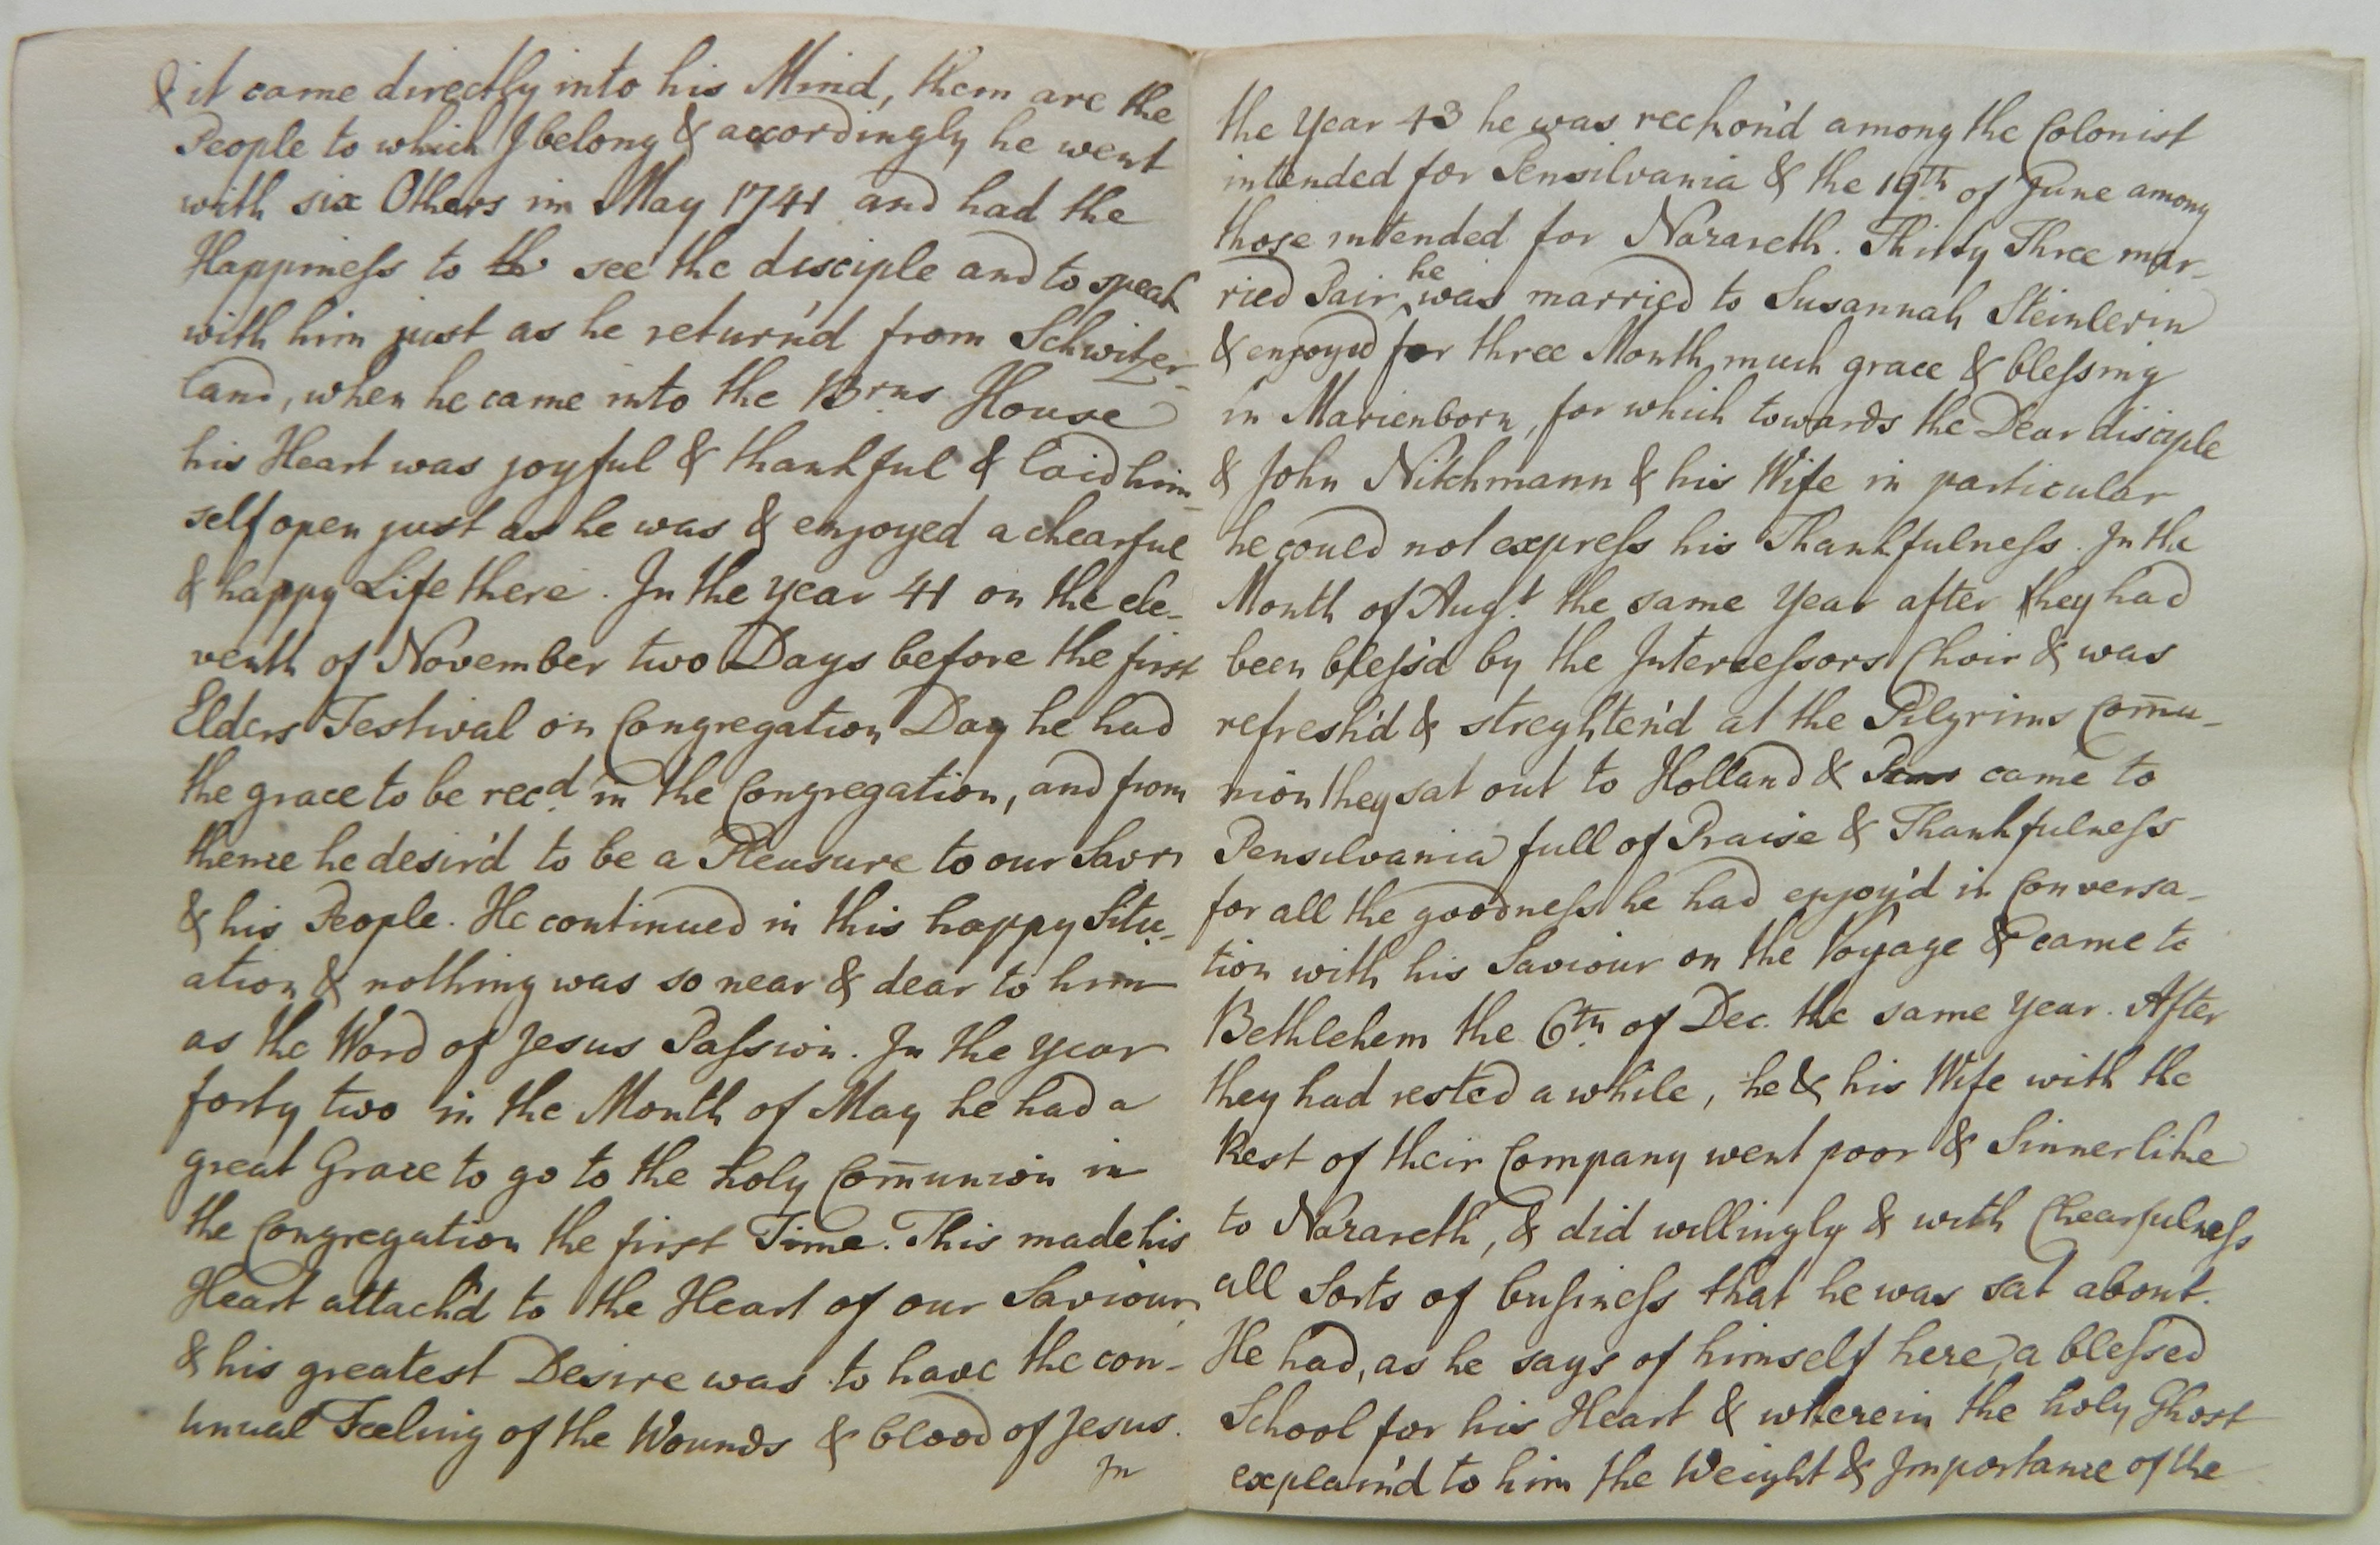 & it came directly into his Mind, them are the
People to which I belong & accordingly he went
with six Others in May 1741 and had the
Happiness to th see the disciple and to speak
with him just as he return'd from Schwitzer-
land, when he came into the Brns House
his Heart was joyful & thankful & laid him-
self open just as he was & enjoyed a chearful
& happy Life there. In the year 41 on the ele-
venth of November two Days before the first
Elders Festival on Congregation Day he had
the grace to be recd. in the Congregation, and from
thence he desir'd to be a Pleasure to our Savr
& his People. He continued in this happy Situ-
ation & nothing was so near & dear to him
as the Word of Jesus Passion. In the year
forty two in the Month of May he had a
great Grace to go to the holy Com̄union in
the Congregation the first Time. This made his
Heart attach'd to the Heart of our Saviour,
& his greatest Desire was to have the con-
tinual Feeling of the Wounds & blood of Jesus.
In
the Year 43 he was reckon'd among the Colonist
intended for Pensilvania & the 19th of June among
those intended for Nazareth. Thirty Three mar-
ried Pair he was married to Susannah Steinlerin
& enjoyed for three Month much grace & blessing
in Marienborn, for which towards the Dear disciple
& John Nitchmann & his Wife in particular
he could not express his Thankfulness. In the
Month of Augt. the same Year after they had
been bless'd by the Intercessors Choir & was
refresh'd & streghten'd at the Pilgrims Com̄u-
nion they sat out to Holland & Pens came to
Pensilvania full of Praise & Thankfulness
for all the goodness he had enjoy'd in Conversa-
tion with his Saviour on the Voyage & came to
Bethlehem the 6th. of Dec. the same year. After
they had rested a while, he & his Wife with the
Rest of their Company went poor & Sinnerlike
to Nazareth, & did willingly & with Chearfulness
all Sorts of business that he was sat about.
He had, as he says of himself here, a blessed
School for his Heart & wherein the holy Ghost
explain'd to him the Weight & Importance of the